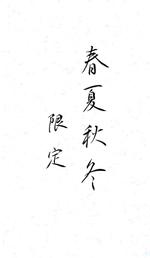 春夏秋冬
限定